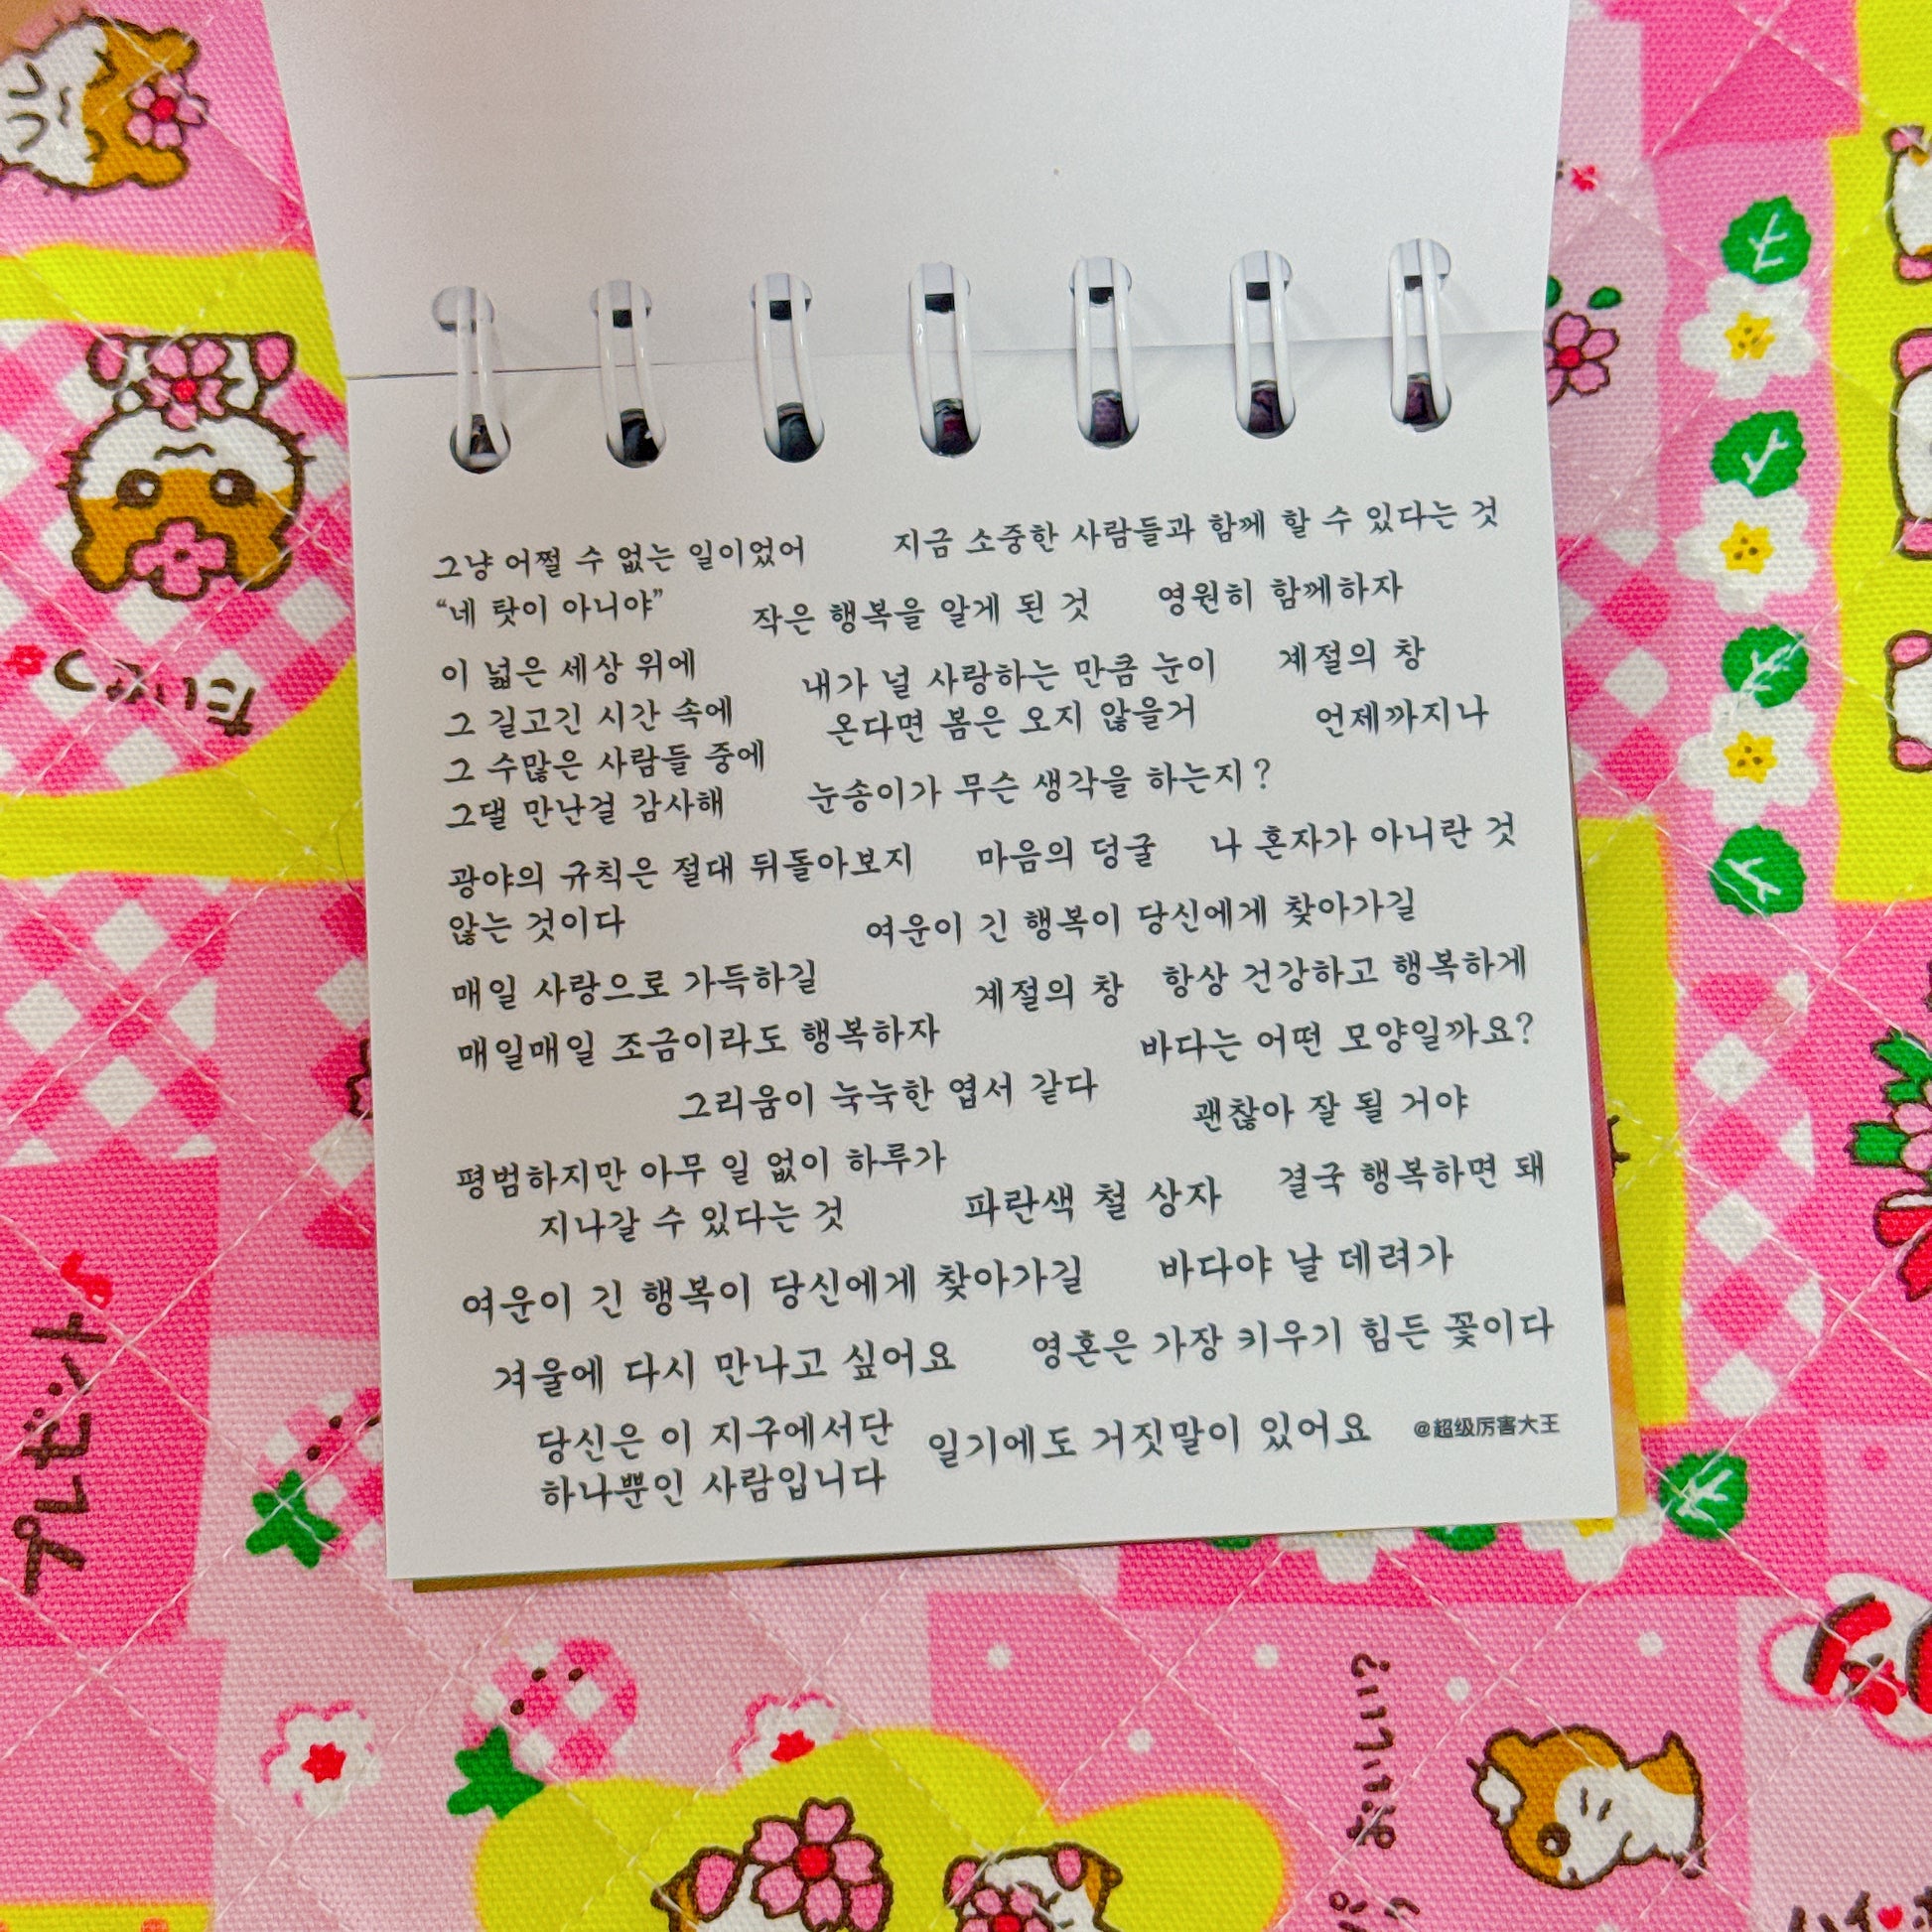 그냥 어쩔 수 없는 일이었어
지금 소중한 사람들과 함께 할 수 있다는 것
“네 탓이 아니야”
작은 행복을 알게 된 것
영원히 함께하자
이 넓은 세상 위에
그 길고긴 시간 속에
그 수많은 사람들 중에
그댈 만난걸 감사해
내가 널 사랑하는 만큼 눈이
온다면 봄은 오지 않을거
계절의 창
언제까지나
눈송이가 무슨 생각을 하는지?
광야의 규칙은 절대 뒤돌아보지
않는 것이다
마음의 덩굴
나 혼자가 아니란 것
여운이 긴 행복이 당신에게 찾아가길
매일 사랑으로 가득하길
계절의 창
항상 건강하고 행복하게
매일매일 조금이라도 행복하자
바다는 어떤 모양일까요?
그리움이 눅눅한 엽서 같다
괜찮아 잘 될 거야
평범하지만 아무 일 없이 하루가
지나갈 수 있다는 것
파란색 철 상자
결국 행복하면 돼
여운이 긴 행복이 당신에게 찾아가길
바다야 날 데려가
겨울에 다시 만나고 싶어요
영혼은 가장 키우기 힘든 꽃이다
당신은 이 지구에서단
하나뿐인 사람입니다
일기에도 거짓말이 있어요
@超级厉害大王
プレゼント